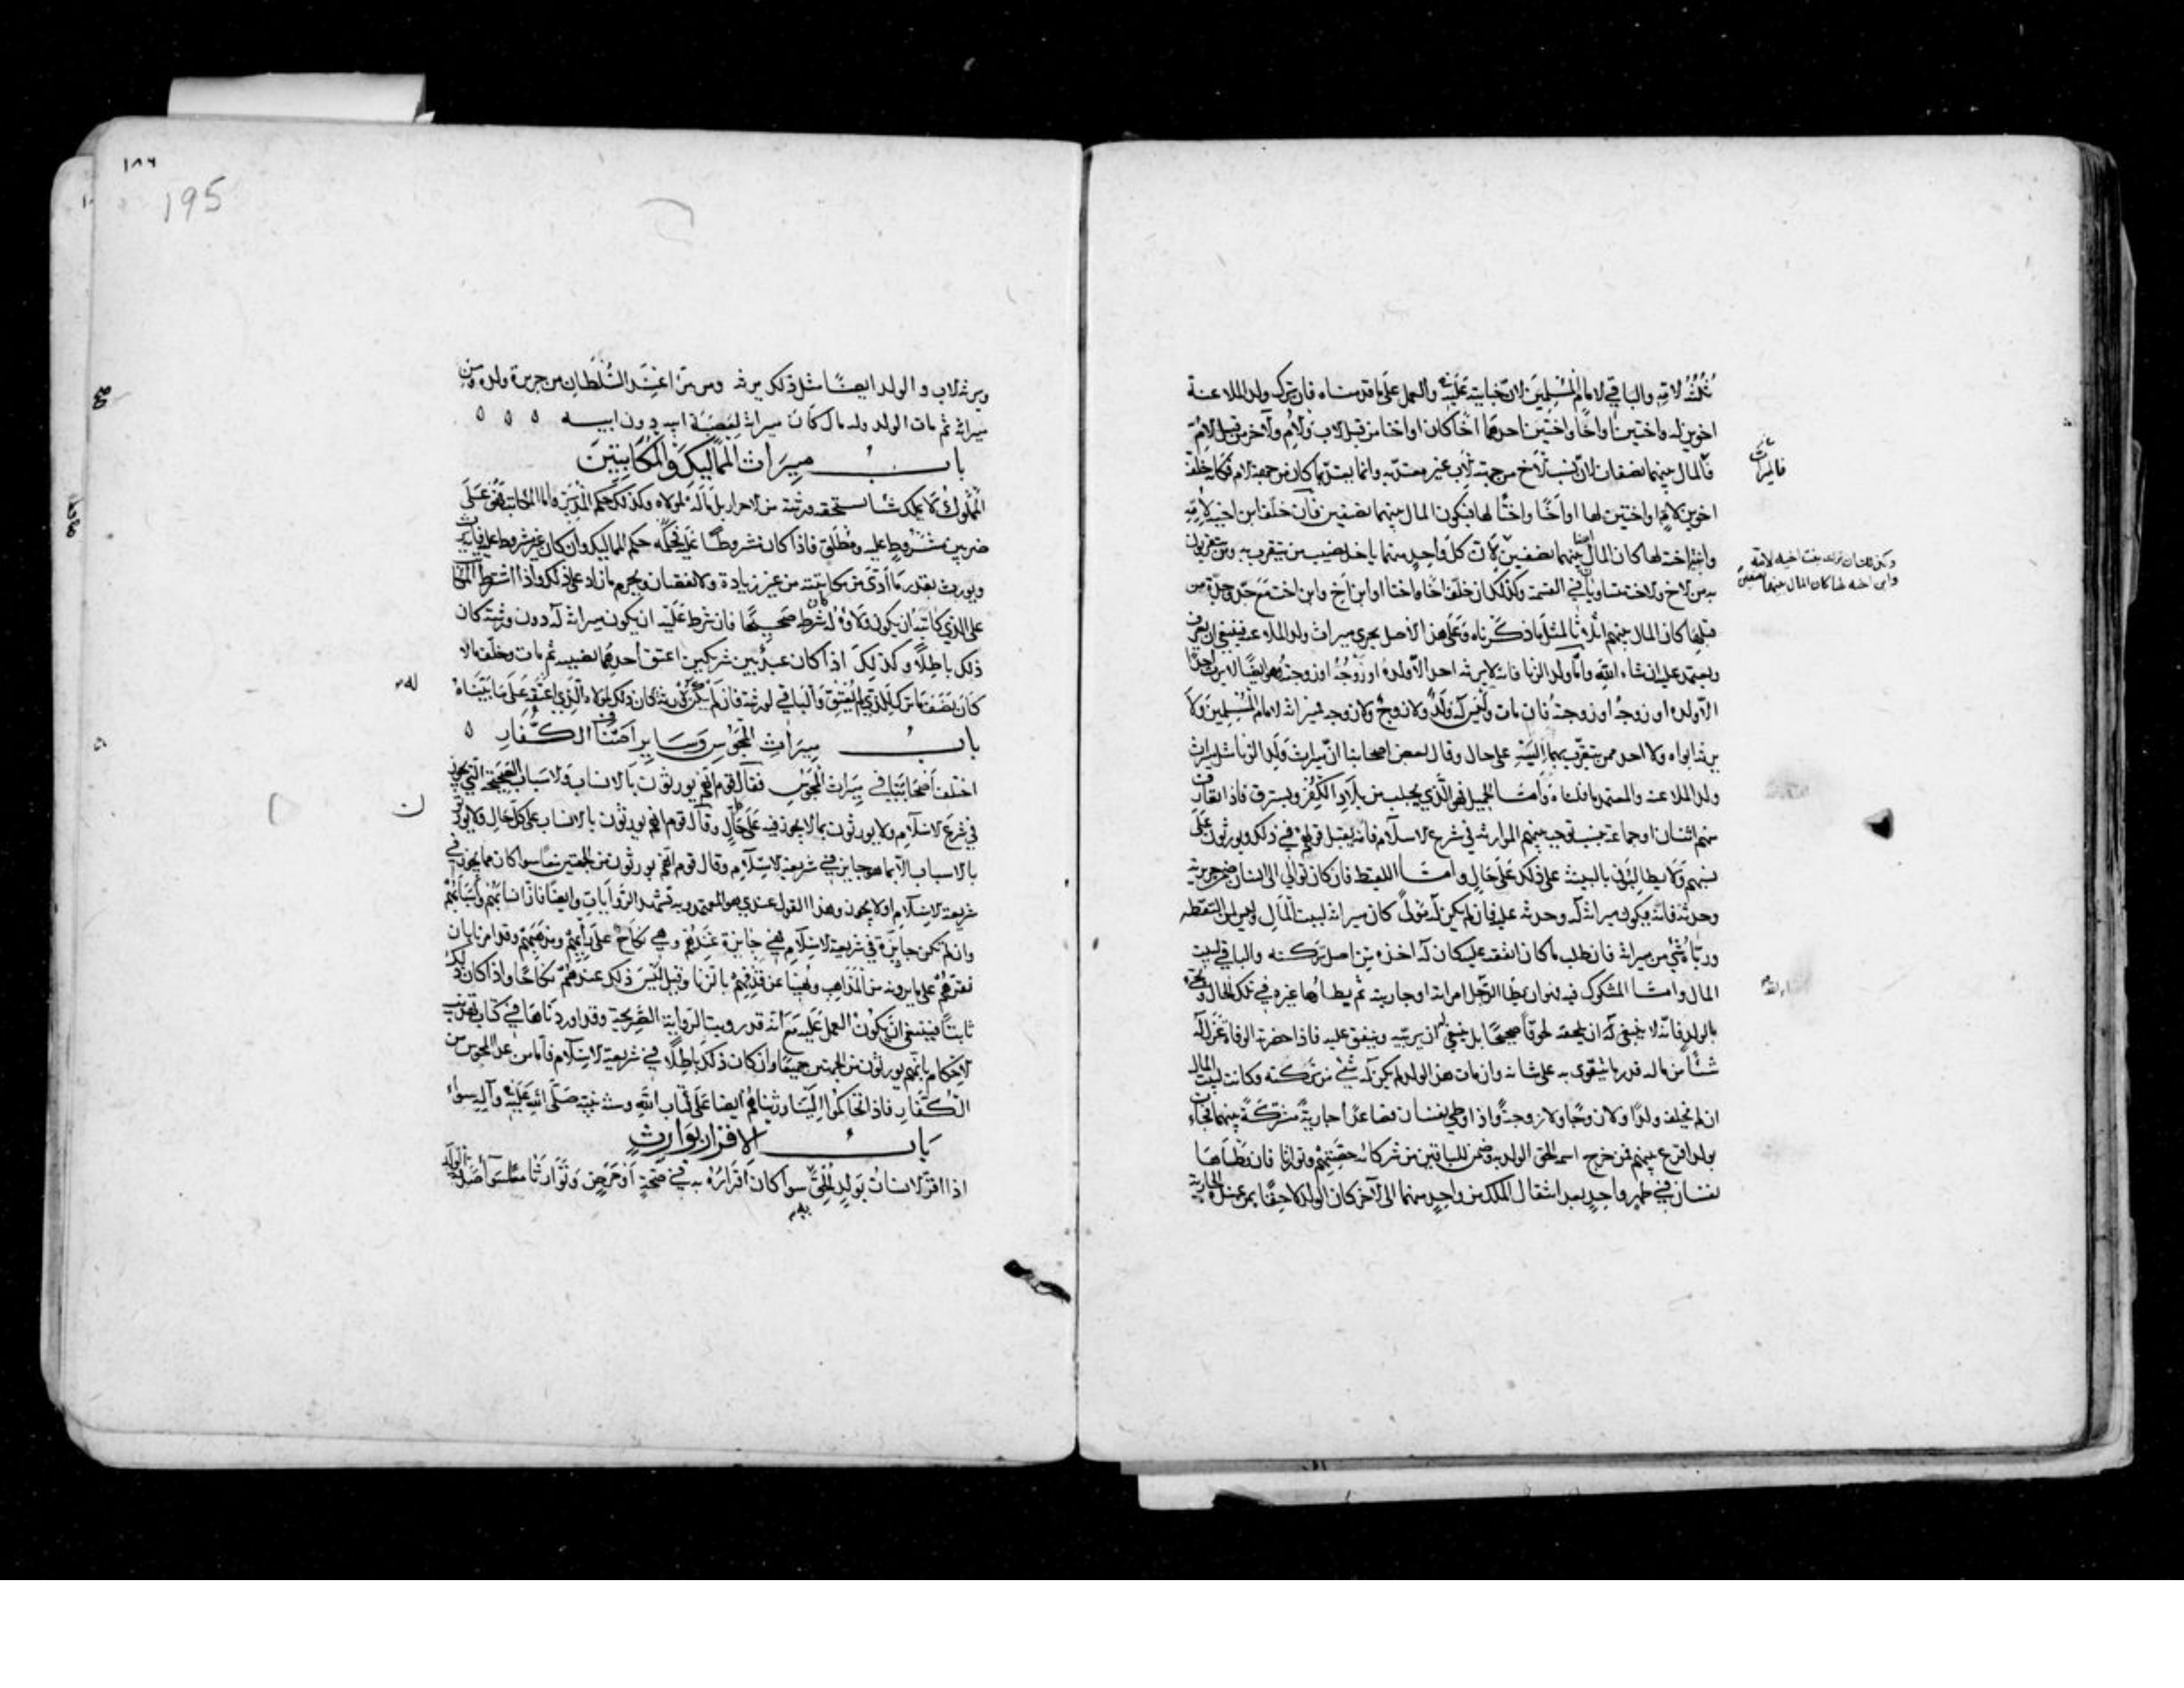 ثلثه لامه والباقي لامام المسلمين لان جنايته عليه والعمل على ما قدمناه فان ترك ولد الملاعنة
اخوين له واختين او اخا واختين احدهما اخا كان او اختا من قبل الاب والام والاخر من قبل الام
فالمال بينهما نصفان لان نسب الاخ من جهة الاب غير معتد به وانما يعتد بما كان من جهة الام فكانه خلف
اخوين لام او اختين لها او اخا واختا لها فيكون المال بينهما نصفين فان خلف ابن اخيه لامه
وابن اخته لها كان المال ايضا بينهما نصفين لان كل واحد منهما ياخذ نصيب من يتقرب به ومن يتقربون
به من الاخ والاخت متساويان في القسمة وكذلك ان خلف اخا واختا او ابن اخ وابن اخت مع جد وجدة من
قبلها كان المال بينهم اثلاثا بالمثل ما ذكرناه وعلى هذا الاصل يجري ميراث ولد الملاعنة فينبغي ان يعرف
ويعتمد عليه ان شاء الله واما ولد الزنا فانه لا يرثه احد الا ولده او زوجه او زوجته وهو ايضا لا يرث احدا
الا ولده او زوجه او زوجته فان مات وليس له ولد ولا زوج ولا زوجة فميراثه لامام المسلمين ولا
يرثه ابواه ولا احد ممن يتقرب بهما اليه على حال وقال بعض اصحابنا ان ميراث ولد الزنا مثل ميراث
ولد الملاعنة والمعتمد ما قلناه واما الحميل فهو الذي يجلب من بلاد الكفر ويسترق فاذا تعارف
منهم اثنان او جماعة بنسب توجب بينهم الموارثة في شرع الاسلام فانه يقبل قولهم في ذلك ويورثون على
نسبهم ولا يطالبون بالبينة على ذلك على حال واما اللقيط فان كان توالى الى انسان ضمن جريرته
وحدثه فانه يكون ميراثه له وحدثه عليه فان لم يكن له تولى كان ميراثه لبيت المال وليس لمن التقطه
ورباه شيء من ميراثه فان طلب ما كان انفقه عليه كان له اخذه من اصل تركته والباقي لبيت
المال واما المشكوك فيه فهو ان يطأ الرجل امراته او جاريته ثم يطاها غيره في تلك الحال وتجيء
بالولد فانه لا ينبغي له ان يلحقه لحوقا صحيحا بل ينبغي ان يربيه وينفق عليه فاذا حضرته الوفاة عزل له
شيئا من ماله قدر ما يتقوى به على شانه وان مات هذا الولد لم يكن له شيء من تركته وكانت لبيت المال
ان لم يخلف ولدا ولا زوجا ولا زوجة واذا وطي نفسان فصاعدا جارية مشتركة بينهما فجاءت
بولد اقرع بينهم فمن خرج اسمه الحق الولد به وضمن للباقين من شركائه حصتهم وتوارثا فان وطئاها
نفسان في طهر واحد بعد انتقال الملك من واحد منهما الى الاخر كان الولد لاحقا بمن عنده الجارية
فالميراث
وابن اخته لها كان المال بينهما نصفين
١٨٦
195
ويرثه الاب والولد ايضا مثل ذلك يرثه ومن تبرا عند السلطان من جريرة ولده ومن
ميراثه ثم مات الولد وله مال كان ميراثه لعصبة ابيه دون ابيه ه ه ه
باب ميراث المماليك والمكاتبين
المملوك لا يملك شيئا يستحقه ورثته من الاحرار بل ماله لمولاه وكذلك حكم المدبر واما المكاتب فهو على
ضربين مشروط عليه ومطلق فاذا كان مشروطا عليه فحكمه حكم المماليك وان كان غير مشروط عليه فانه يرث
ويورث بقدر ما ادى من مكاتبته من غير زيادة ولا نقصان ويحرم ما زاد على ذلك واذا اشترط المكاتب
على الذي كاتبه ان يكون ولاؤه له كان شرطه صحيحا فان شرط عليه ان يكون ميراثه له دون ورثته كان
ذلك باطلا وكذلك اذا كان عبد بين شريكين اعتق احدهما نصيبه ثم مات وخلف مالا
كان نصف ما ترك للذي لم يعتق والباقي لورثته فان لم يكن له ورثة كان ذلك لمولاه الذي اعتقه على ما بيناه
له
باب ميراث المجوس وساير اصناف الكفار ه
اختلف اصحابنا في ميراث المجوس فقال قوم انهم يورثون بالانساب والاسباب الصحيحة التي يجوز
في شرع الاسلام ولا يورثون بما لا يجوز فيه على حال وقال قوم انهم يورثون بالانساب على كل حال ولا يورثون
بالاسباب الا بما هو جايز في شريعة الاسلام وقال قوم انهم يورثون من الجهتين معا سوا كان مما يجوز في
شريعة الاسلام او لا يجوز وهذا القول عندي هو المعتمد وبه تشهد الروايات وايضا فان انسابهم واسبابهم
وان لم تكن جايزة في شريعة الاسلام فهي جايزة عندهم وهي نكاح على رايهم ومذهبهم وقد امرنا بان
نقرهم على ما يرونه من المذاهب ونهينا عن قذفهم بالزنا وقيل اليس ذلك عندهم نكاحا واذا كان ذلك
ثابتا فينبغي ان يكون العمل عليه مع انه قد رويت الرواية الصريحة وقد اوردناها في كتاب تهذيب
الاحكام بانهم يورثون من الجهتين جميعا وان كان ذلك باطلا في شريعة الاسلام فاما من عدا المجوس من
الكفار فاذا تحاكموا الينا ورثناهم ايضا على كتاب الله وسنة نبيه صلى الله عليه وآله سواء
باب الاقرار بوارث
اذا اقر الانسان بولد الحق به سوا كان اقراره به في صحة او مرض وتوارثا معا سوا صدقه الولد